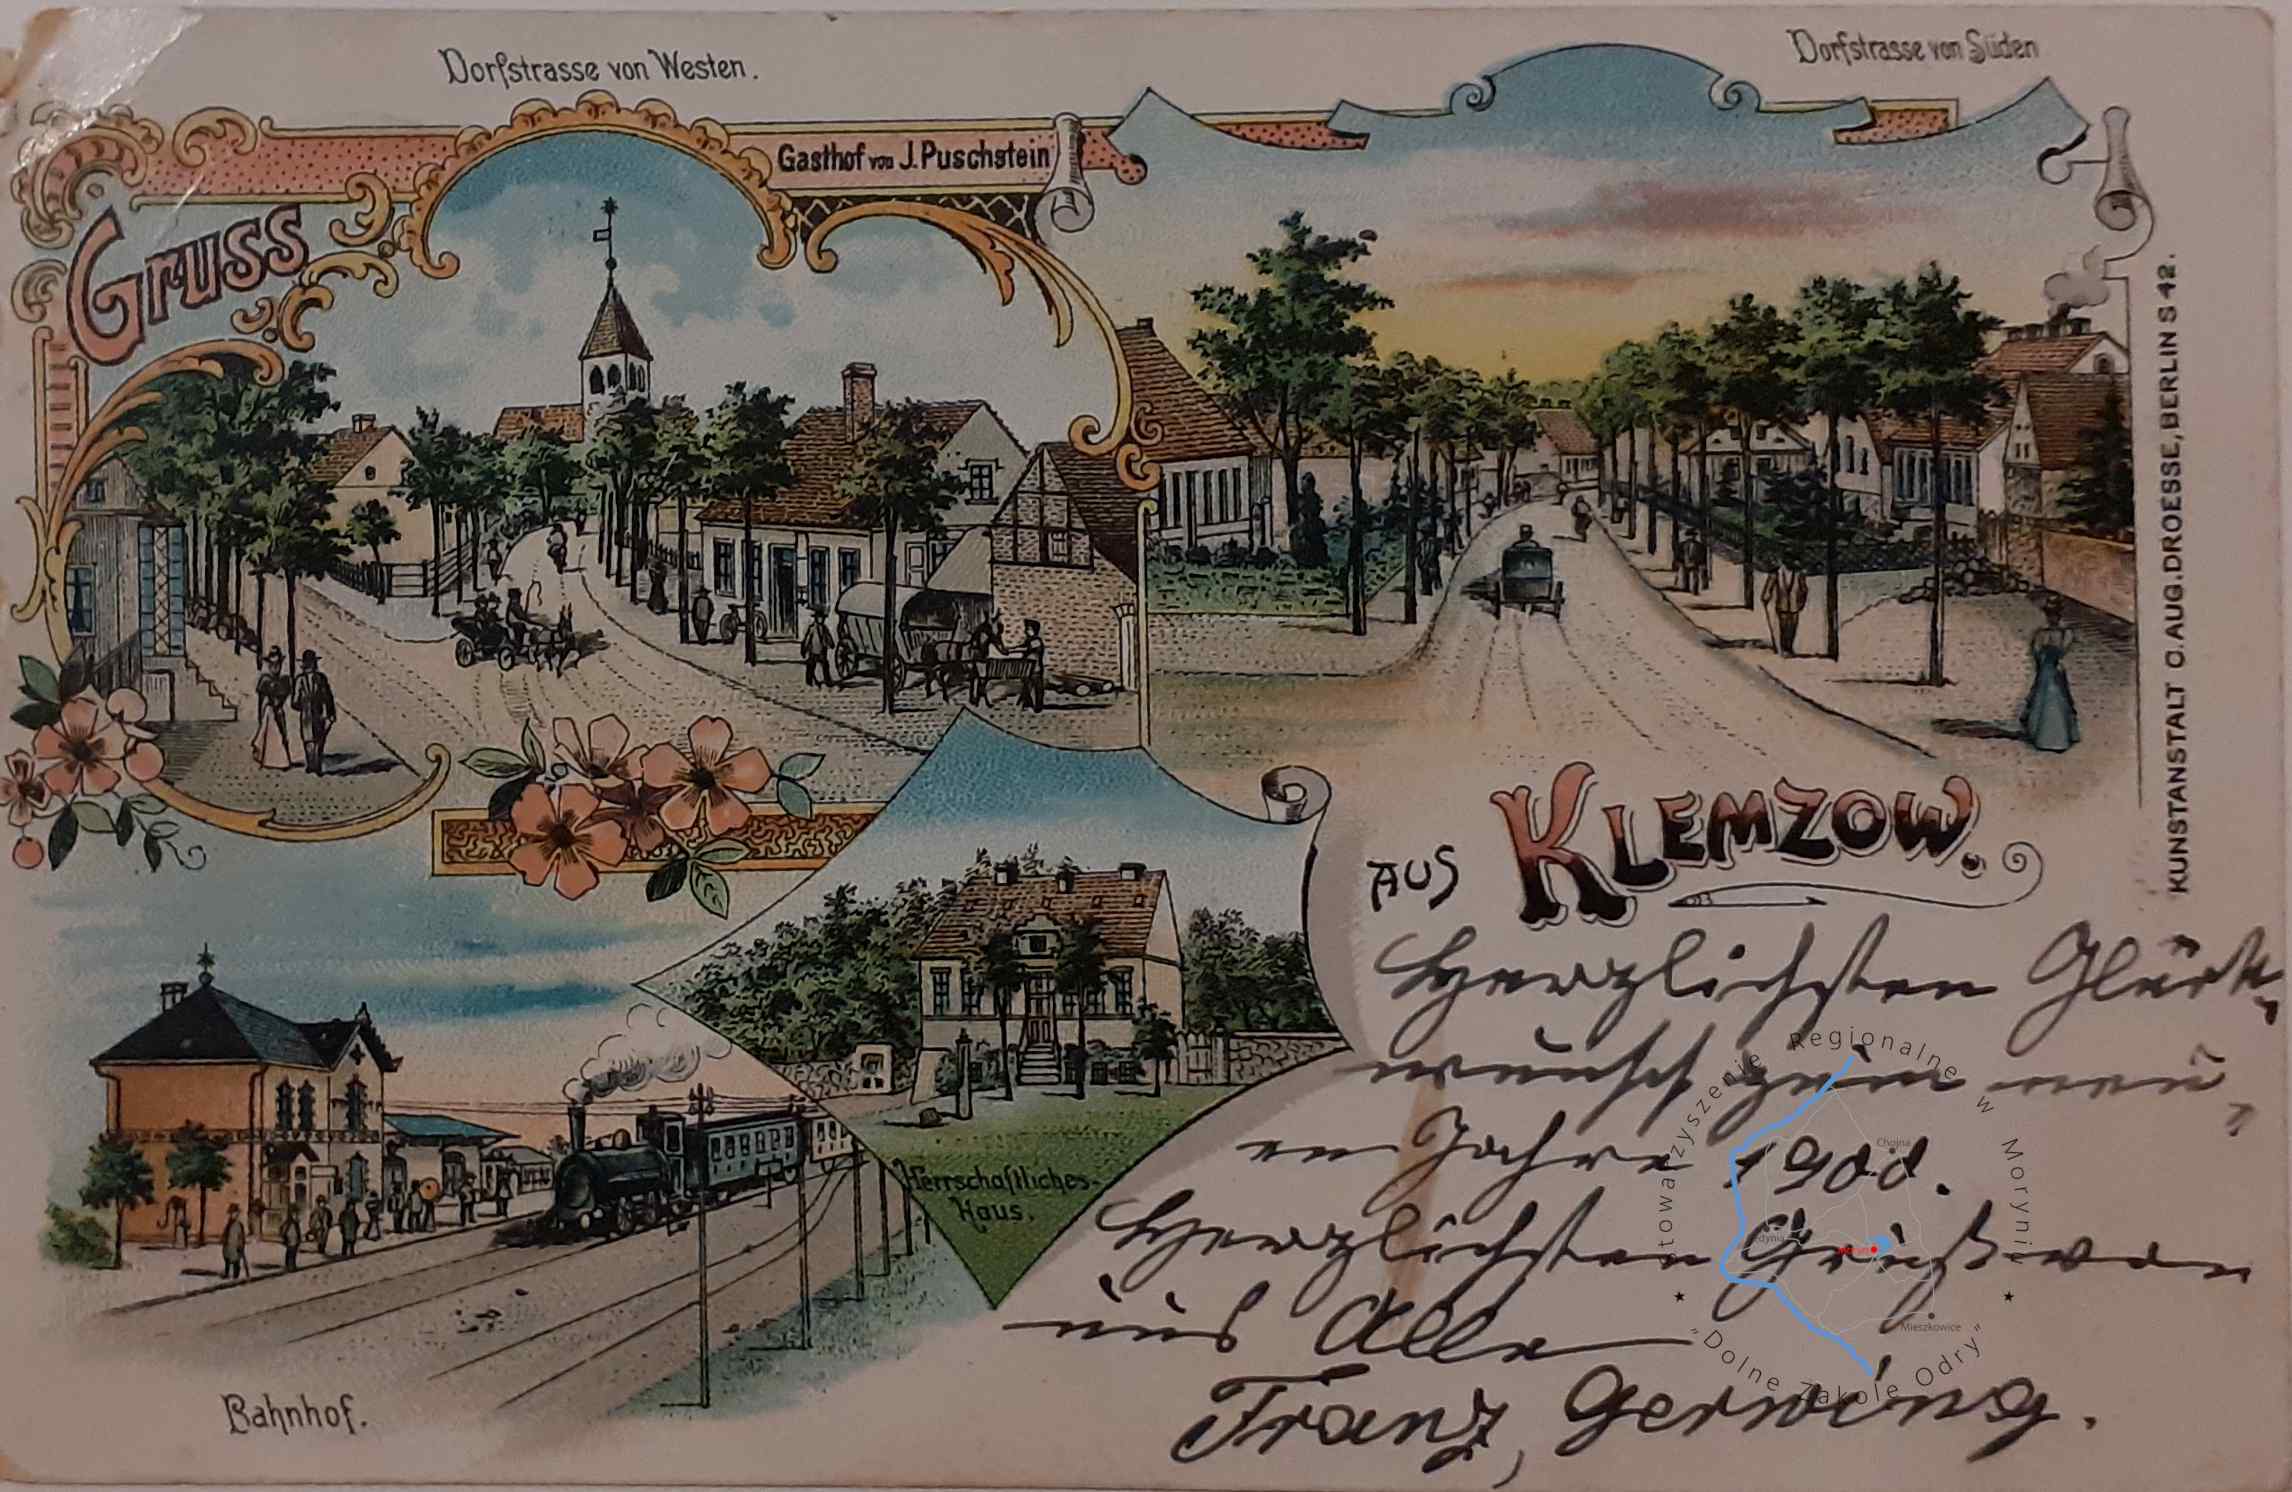 Dorfstrasse von Westen.
Dorfstrasse von Süden
Gasthof von J. Puschstein
Gruss
aus Klemzow.
KUNSTANSTALT O. AUG. DROESSE, BERLIN S 42.
Herzlichsten Glück-
wunsch zum neu-
en Jahre 1900.
Herzlichsten Gruß von
uns Alle
Franz, Gerwing.
Herrschaftliches-
Haus.
Bahnhof.
Stowarzyszenie Regionalne w Moryniu
"Dolne Zakole Odry"
Chojna
Cedynia
Moryń
Mieszkowice